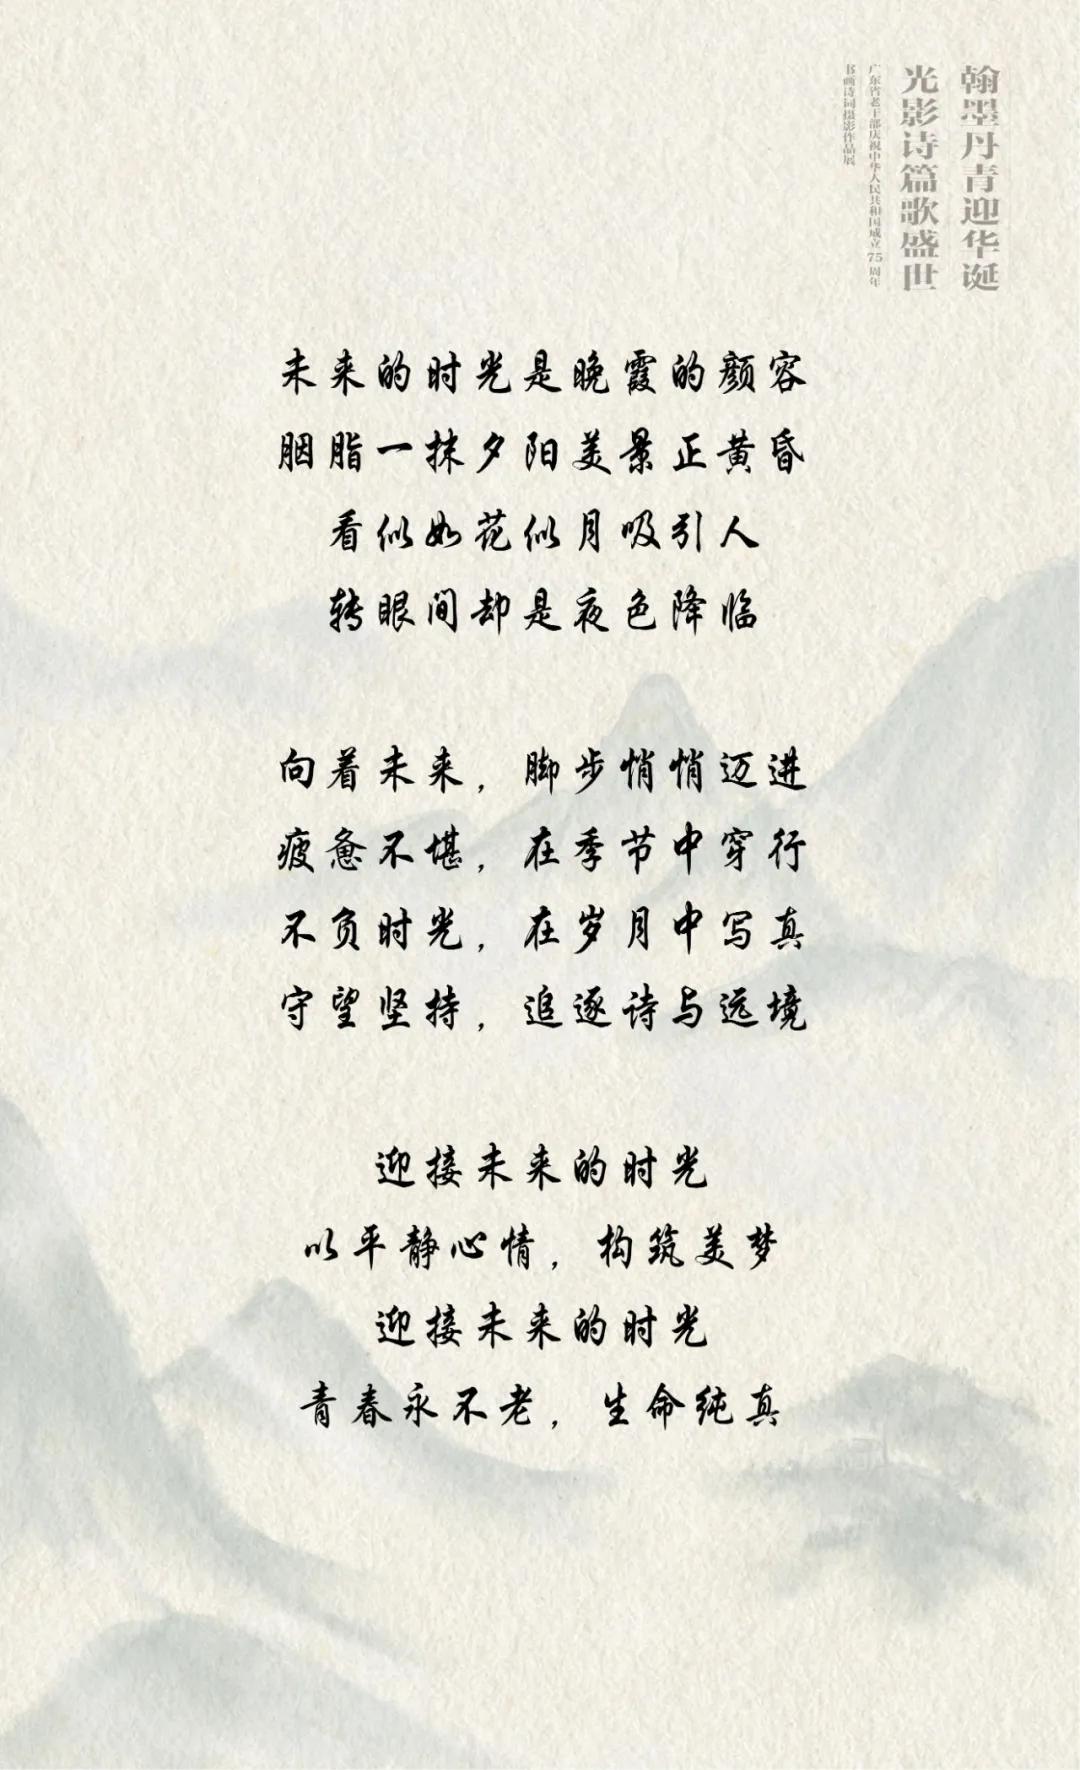 翰墨丹青迎华诞
光影诗篇歌盛世
广东省老干部庆祝中华人民共和国成立75周年
书画诗词摄影作品展
未来的时光是晚霞的颜容
胭脂一抹夕阳美景正黄昏
看似如花似月吸引人
转眼间却是夜色降临
向着未来，脚步悄悄迈进
疲惫不堪，在季节中穿行
不负时光，在岁月中写真
守望坚持，追逐诗与远境
迎接未来的时光
以平静心情，构筑美梦
迎接未来的时光
青春永不老，生命纯真